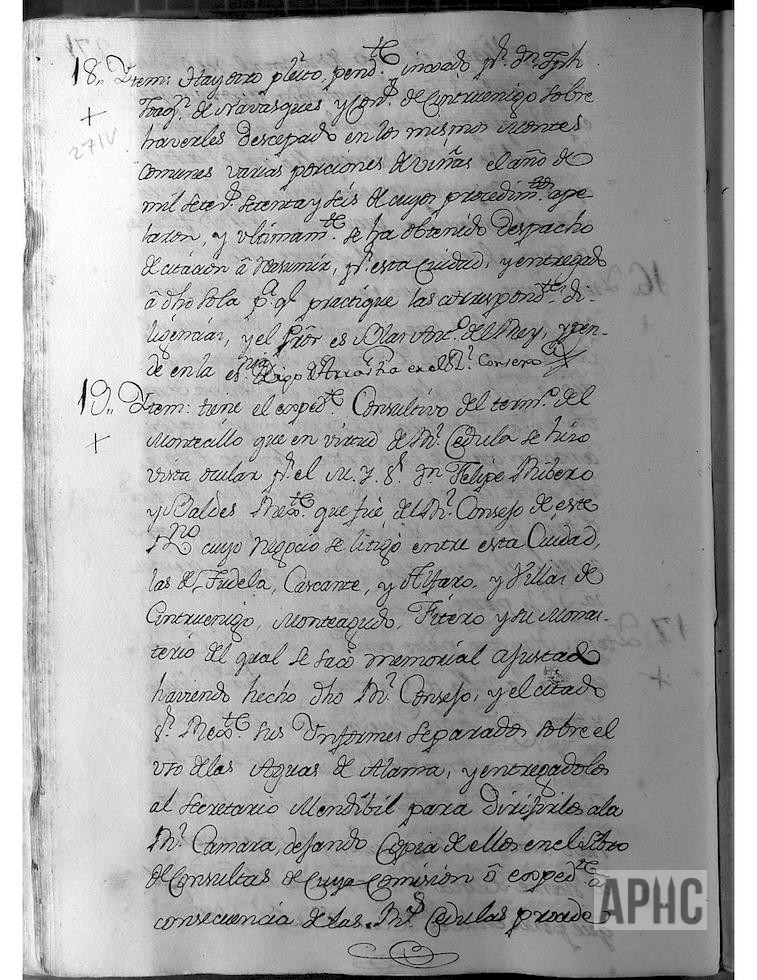 18,, Ytem: Hay otro pleito pend.te inovado p.r D.n Jph
Joaq.n de Navasques y Cons.s de Cintruenigo sobre
+
271V
haverles descepado en los mismos Montes
comunes varias porciones de viñas el año de
mil setez.s setenta y seis de cuyos procedim.tos ape
laron, y vltimam.te se ha obtenido despacho
de citación â resumir, p.r esta Ciudad, y entregado
â dho Sola p.a q.e practique las correspond.tes di-
ligencias, y el Pror es Blas Ant.o del Rey, y pen-
de en la es.nia Diego de Arrastia en el R.l Consejo
19,, Ytem: tiene el exped.te Consultivo del term.o del
+
Montecillo que en virtud de R.l Cedula se hizo
vista ocular p.r el M. Y. S.r D.n Felipe Ribero
y Baldes Rex.te que fue del R.l Consejo de este
R.no cuyo negocio se litigó entre esta Ciudad,
las de Tudela, Cascante, y Alfaro, y Villas de
Cintruenigo, Monteagudo, Fitero y su Monas-
terio del qual se sacó memorial ajustado
haviendo hecho dho R.l Consejo, y el citado
S.r Rex.te sus Ynformes separados sobre el
vso de las Aguas de Alama, y entregadolos
al Secretario Mendibil para dirijirlos ala
R.l Camara, dejando Copia de ellos en el Libro
de Consultas de cuya Comisión ô exped.te a
consecuencia de las R.s Cedulas procede
APHC